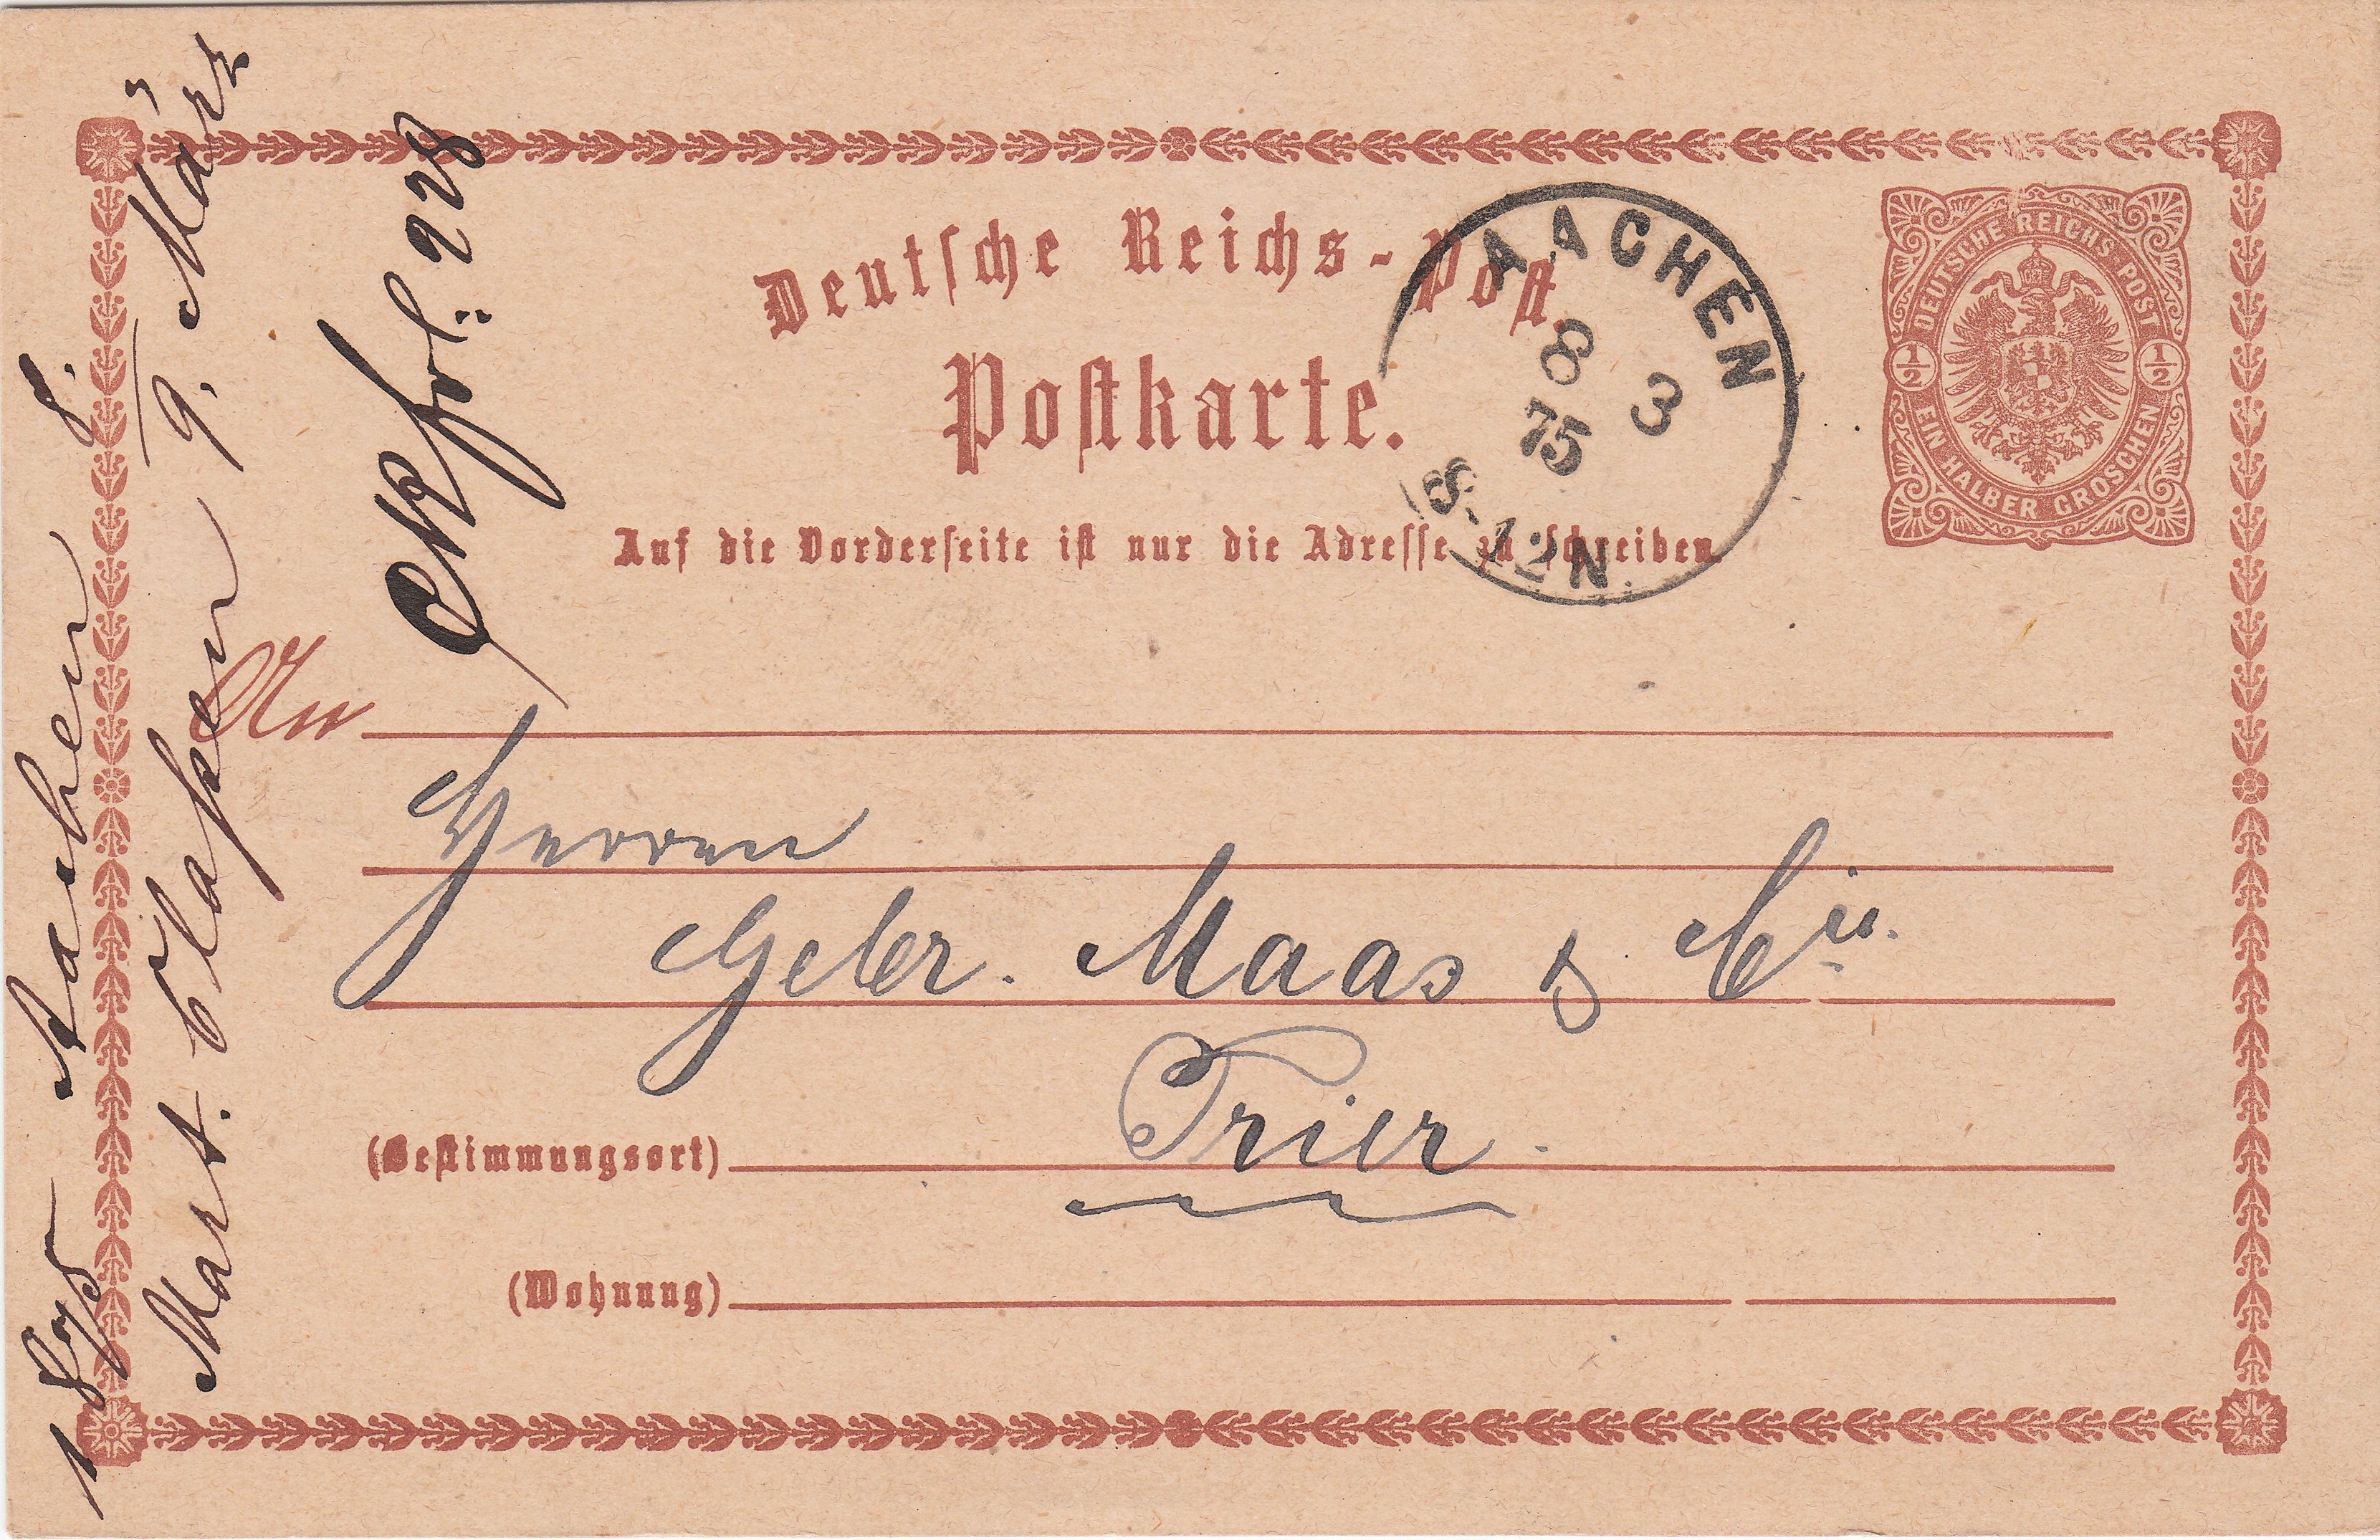 Deutsche Reichs-Post.
Postkarte.
Auf die Vorderseite ist nur die Adresse zu schreiben.
AACHEN
8 3
75
8-12N.
DEUTSCHE REICHS POST
1/2 1/2
EIN HALBER GROSCHEN
An
Herren
Gebr. Maas & Cie.
(Bestimmungsort) Trier.
(Wohnung)
1875 Aachen 8.
9. März
Mart. Claßen
228